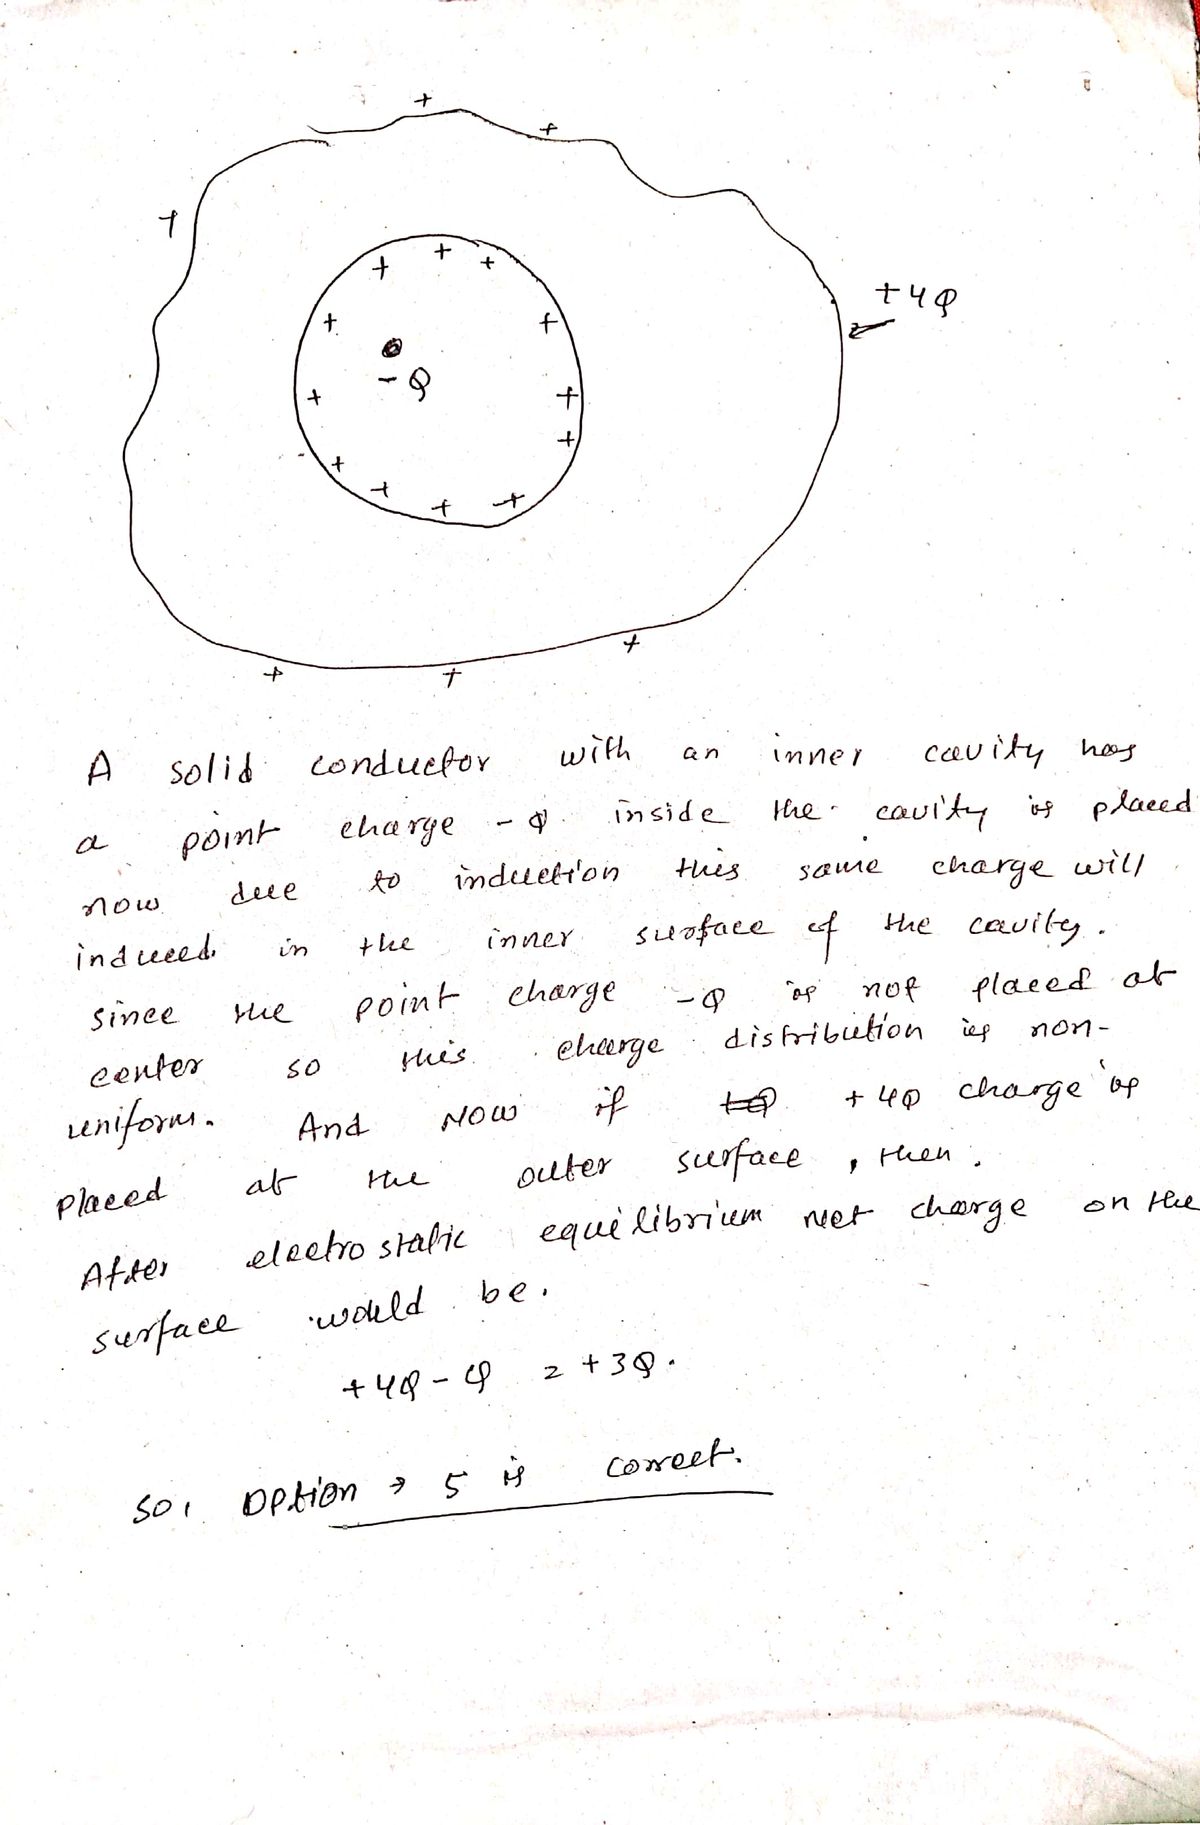 + +
+
+ + +
+ +
+4Q
-Q
+ +
+
+ +
+ + +
+ + +
A solid conductor with an inner cavity has
a point charge -Q inside the cavity is placed
now due to induction this same charge will
induced in the inner surface of the cavity.
since the point charge -Q is not placed at
center so this charge distribution is non-
uniform. And Now if +4Q charge is
placed at the outer surface, then.
After electrostatic equilibrium net charge on the
surface would be.
+4Q - Q = +3Q.
So, Option → 5 is correct.